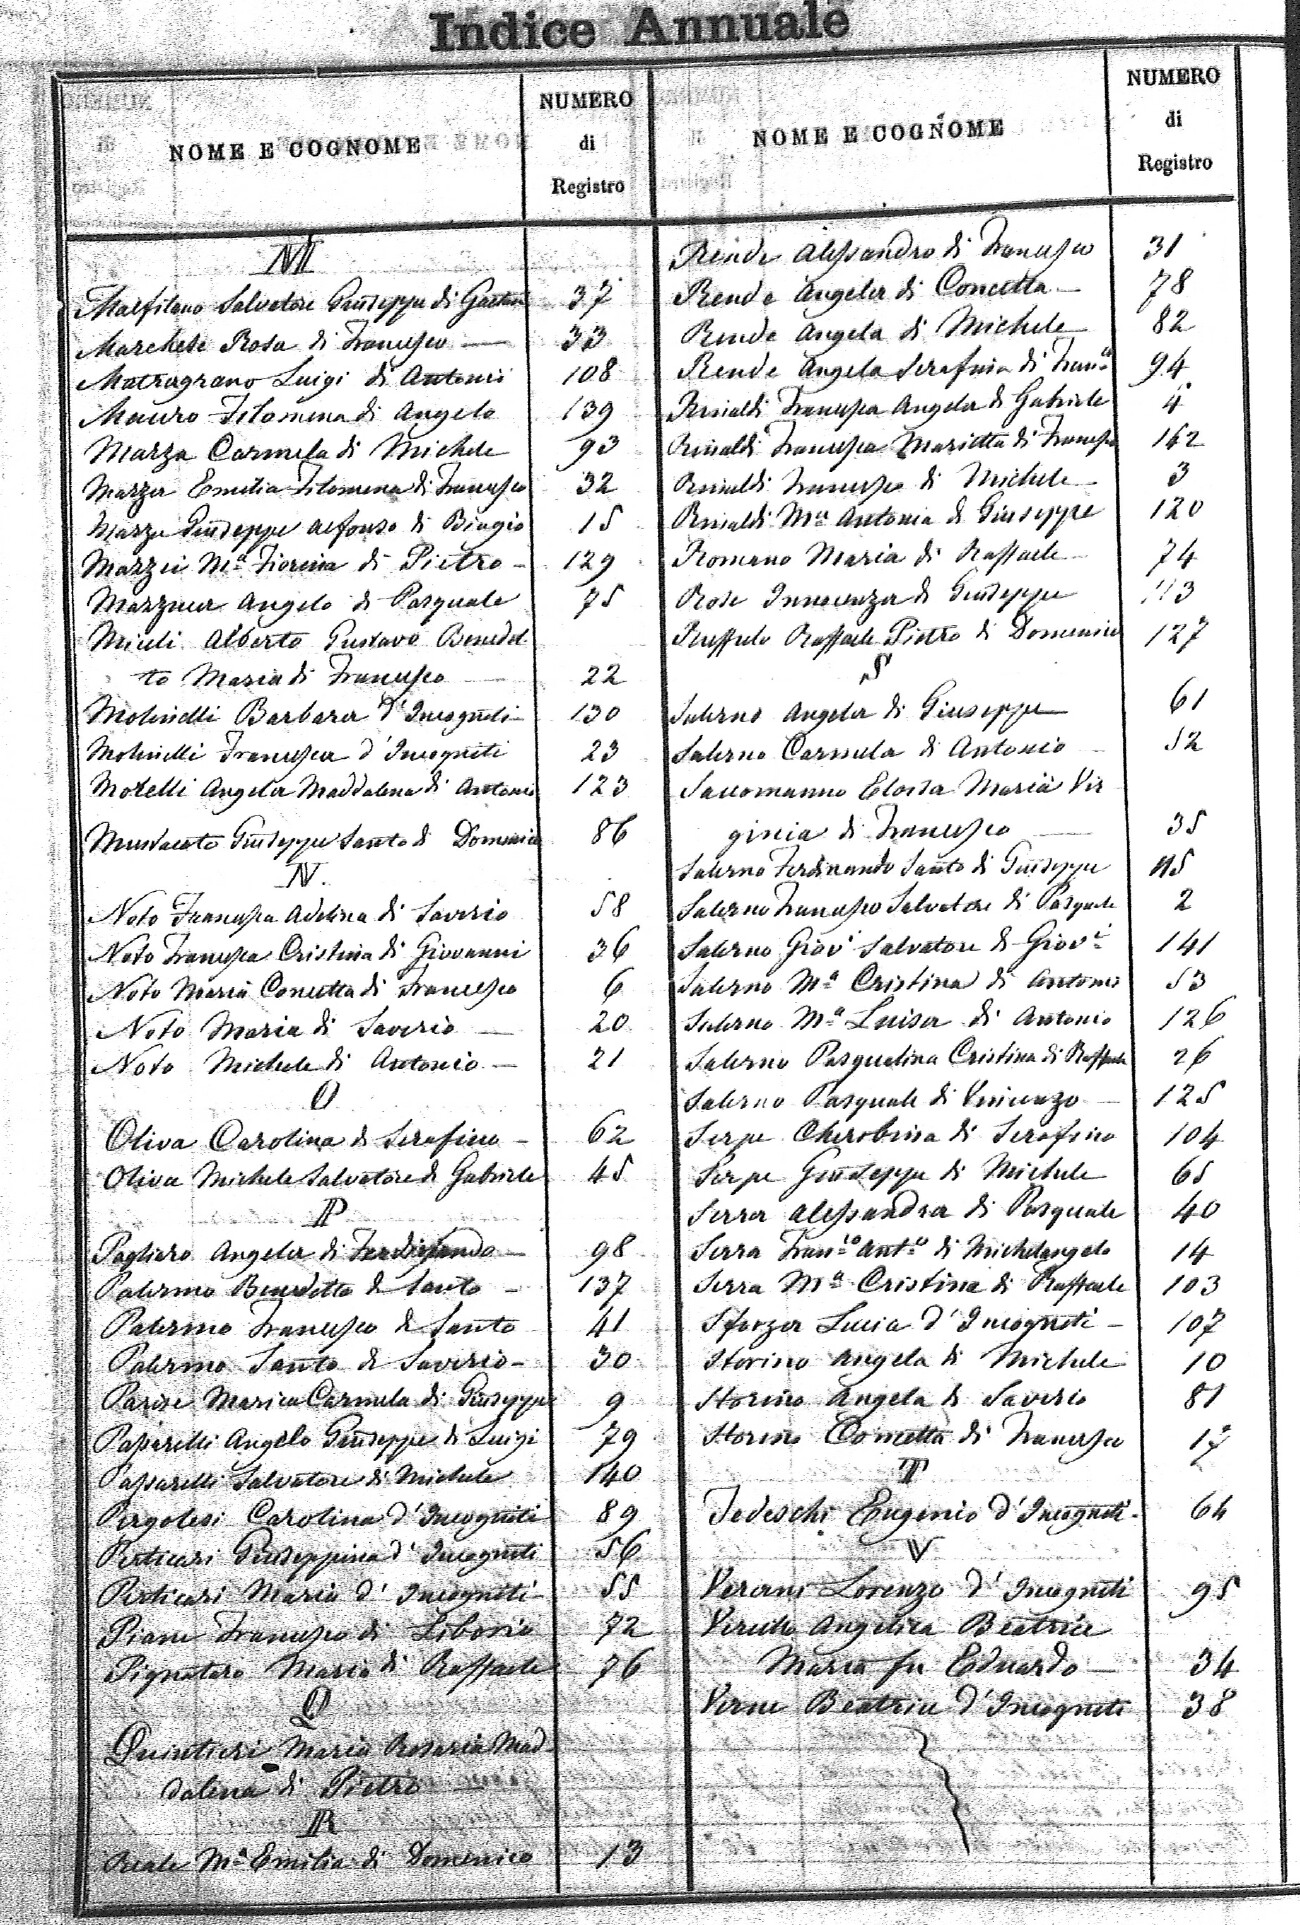 Indice Annuale
NOME E COGNOME
NUMERO
di
Registro
M
Malfitano Salvatore Giuseppe di Gaetano 37
Marchese Rosa di Francesco 33
Matragrano Luigi di Antonio 108
Mauro Filomena di Angelo 139
Mazza Carmela di Michele 93
Mazza Emilia Filomena di Francesco 32
Mazza Giuseppe Alfonso di Biagio 15
Mazzei Mª Fiorina di Pietro 129
Mazzuca Angelo di Pasquale 75
Miceli Alberto Gustavo Benedet
to Maria di Francesco 22
Molinelli Barbara d'Incogniti 130
Molinelli Francesca d'Incogniti 23
Morelli Angela Maddalena di Antonio 123
Musacato Giuseppe Santo di Domenico 86
N.
Noto Francesca Adelina di Saverio 58
Noto Francesca Cristina di Giovanni 36
Noto Maria Concetta di Francesco 6
Noto Maria di Saverio 20
Noto Michele di Antonio 21
O
Oliva Carolina di Serafino 62
Oliva Michele Salvatore di Gabriele 45
P
Pagliaro Angela di Ferdinando 98
Palermo Benedetta di Santo 137
Palermo Francesco di Santo 41
Palermo Santo di Saverio 30
Parise Maria Carmela di Giuseppe 9
Passarelli Angelo Giuseppe di Luigi 79
Passarelli Salvatore di Michele 140
Pergolesi Carolina d'Incogniti 89
Perticari Giuseppina d'Incogniti 56
Perticari Maria d'Incogniti 55
Piane Francesco di Liborio 72
Pignataro Maria di Raffaele 76
Q
Quintieri Maria Rosaria Mad-
dalena di Pietro
R
Reale Mª Emilia di Domenico 13
NOME E COGNOME
NUMERO
di
Registro
Rende Alessandro di Francesco 31
Rende Angela di Concetta 78
Rende Angela di Michele 82
Rende Angela Serafina di Fran.co 94
Rinaldi Francesca Angela di Gabriele 4
Rinaldi Francesca Marietta di Francesco 162
Rinaldi Francesco di Michele 3
Rinaldi Mª Antonia di Giuseppe 120
Romano Maria di Raffaele 74
Rose Innocenza di Giuseppe 113
Ruffolo Raffaele Pietro di Domenico 127
S
Salerno Angela di Giuseppe 61
Salerno Carmela di Antonio 52
Saccomanno Eloisa Maria Vir
ginia di Francesco 35
Salerno Ferdinando Santo di Giuseppe 115
Salerno Francesco Salvatore di Pasquale 2
Salerno Giov.i Salvatore di Giov.i 141
Salerno Mª Cristina di Antonio 53
Salerno Mª Luisa di Antonio 126
Salerno Pasqualina Cristina di Raffaele 26
Salerno Pasquale di Vincenzo 125
Serpe Cherobina di Serafino 104
Serpe Giuseppe di Michele 65
Serra Alessandra di Pasquale 40
Serra Fran.co Ant.o di Michelangelo 14
Serra Mª Cristina di Raffaele 103
Sforza Lucia d'Incogniti 107
Storino Angela di Michele 10
Storino Angela di Saverio 81
Storino Cometta di Francesco 17
T
Tedeschi Eugenio d'Incogniti 64
V
Verani Lorenzo d'Incogniti 95
Angelica Beatrice
Maria fu Eduardo 34
Verne Beatrice d'Incogniti 38